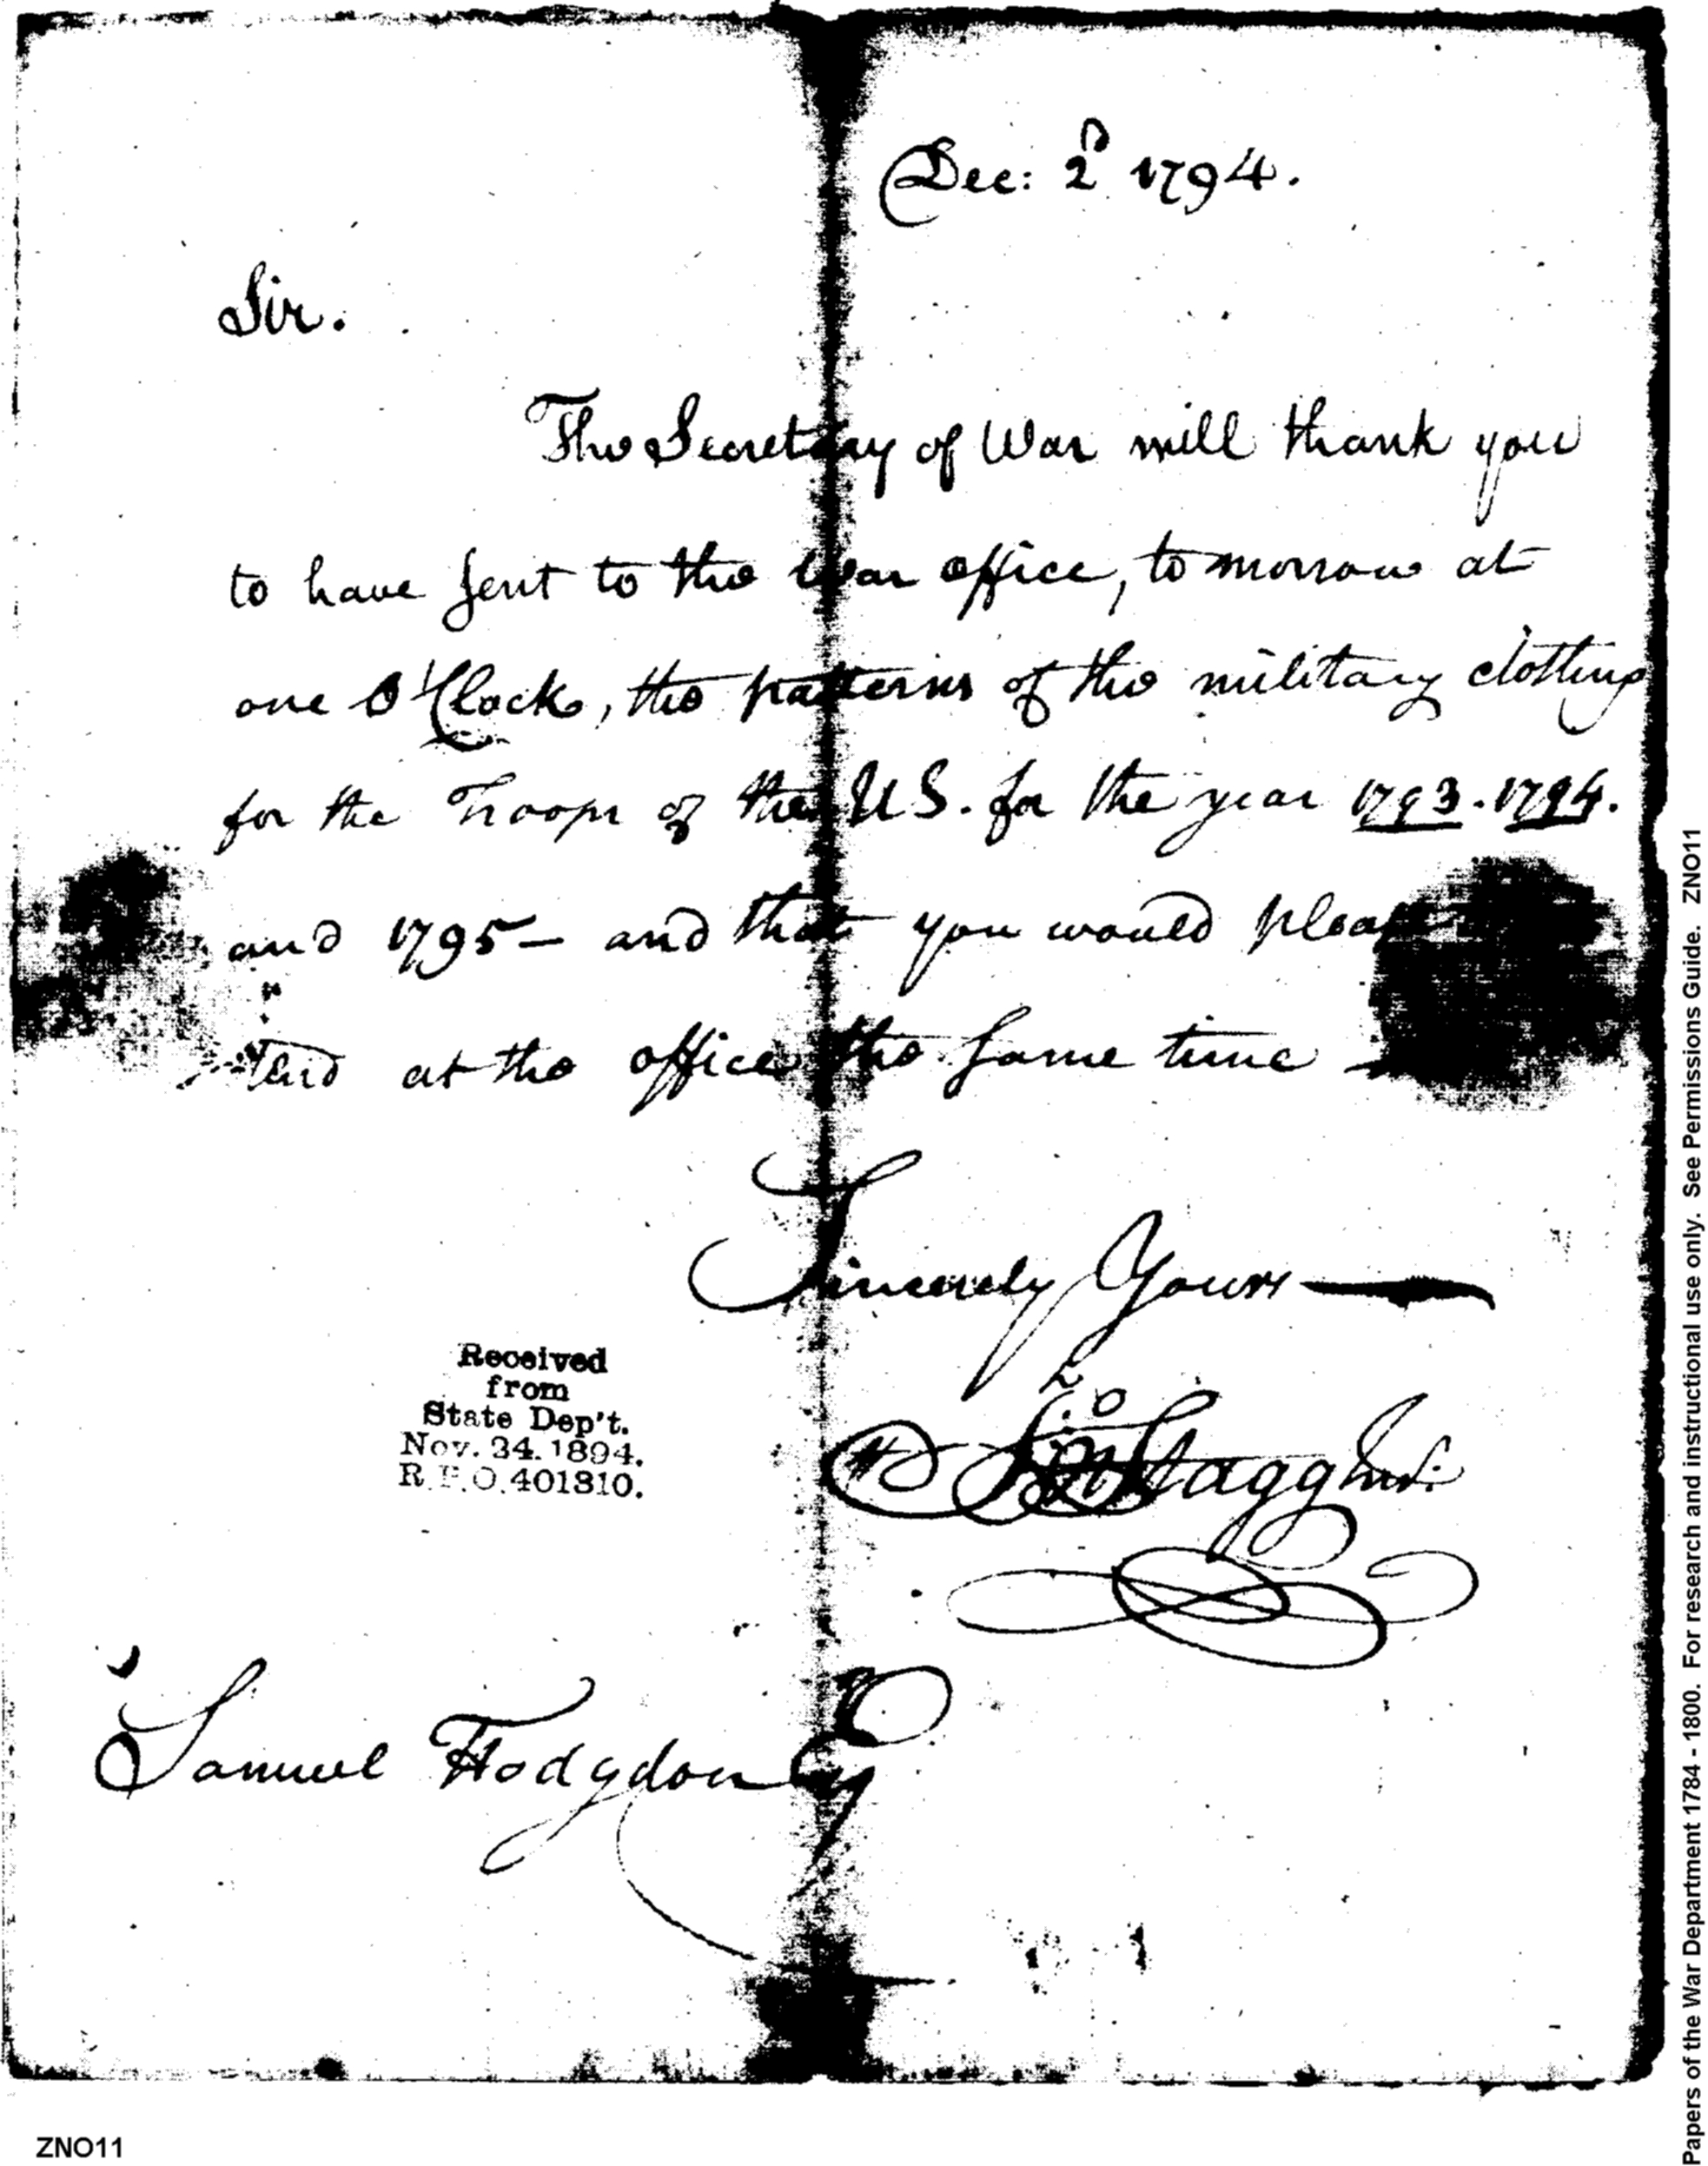 Dec: 2d 1794.
Sir.
The Secretary of War will thank you
to have sent to the War office, to morrow at
one O'Clock, the patterns of the military clothing
for the Troops of the U S. for the year 1793. 1794.
and 1795 — and that you would please
tend at the office the same time
Sincerely Yours
Jno Stagg Junr.
Received
from
State Dep't.
Nov. 24. 1894.
R. P. O. 401310.
Samuel Hodgdon Esq
ZNO11
Papers of the War Department 1784 - 1800. For research and instructional use only. See Permissions Guide. ZNO11